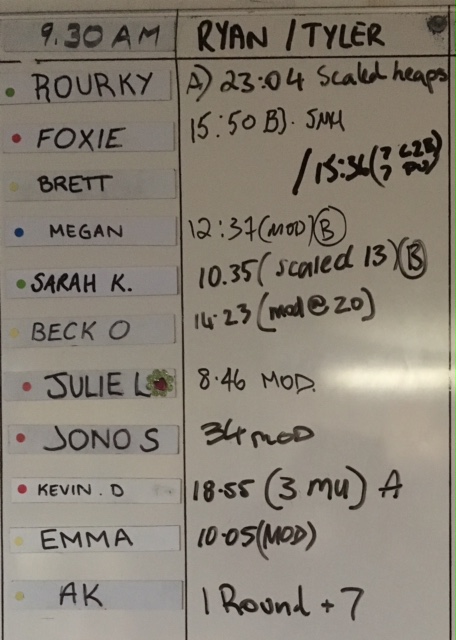 9.30 AM RYAN / TYLER
ROURKY A) 23:04 Scaled heaps
FOXIE 15:50 B).
BRETT / 15:36 (7
7
MEGAN 12:37 (MOD) B
SARAH K. 10.35 (scaled 13) B
BECK O 14.23 (mod @ 20)
JULIE L 8.46 MOD.
JONO S 34 MOD
KEVIN. D 18.55 (3 MU) A
EMMA 10.05 (MOD)
AK 1 Round + 7